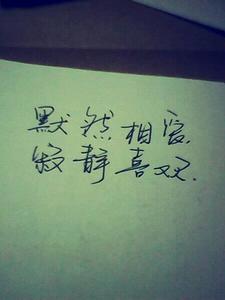 默然相爱
寂静喜欢.